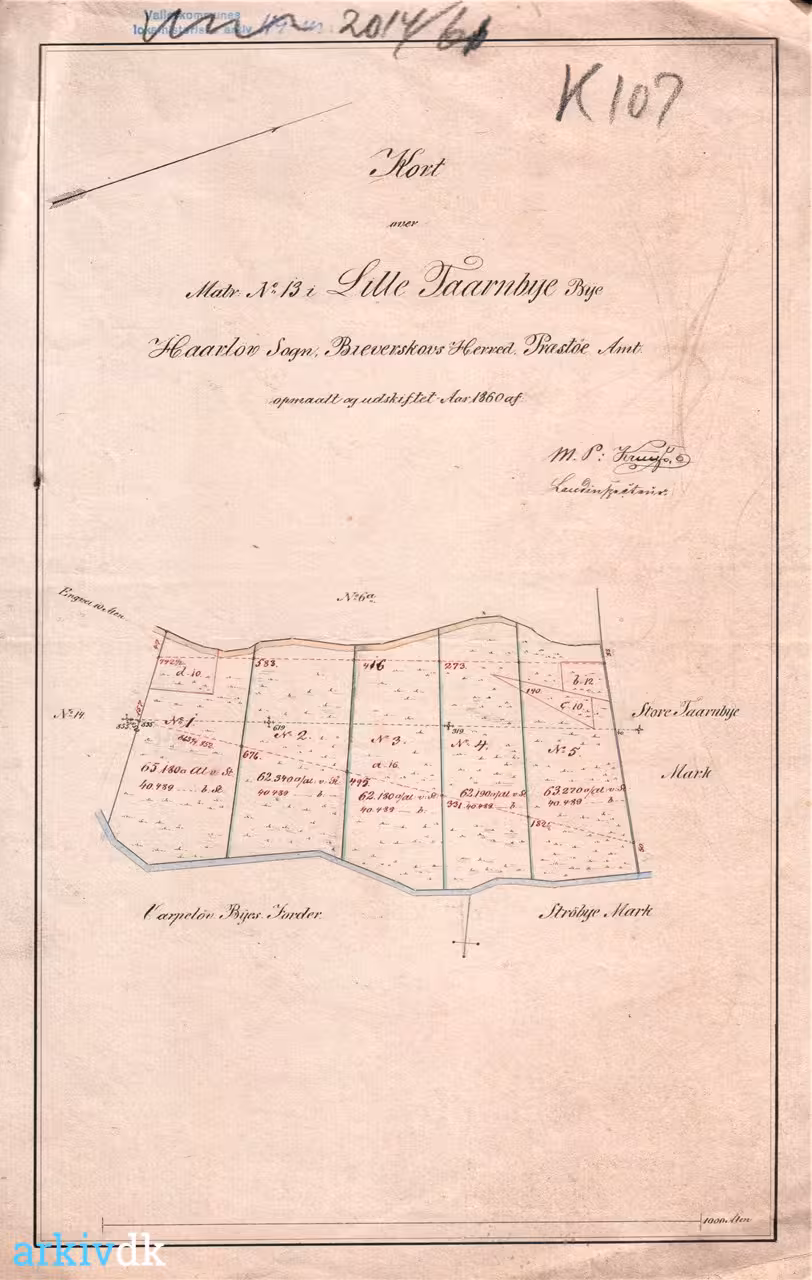 Vallø kommunes
lokalhistoriske arkiv
2014/61
K107
Kort
over
Matr. No. 13 i Lille Taarnbye Bye
Haarlöv Sogn, Bieverskovs Herred, Præstöe Amt
opmaalt og udskiftet Aar 1860 af
M. P:
Landinspecteur.
No. 6a
No. 14.
583.
416
273.
d. 10.
b. 12.
140.
c. 10.
Store Taarnbye
Mark
No. 1
No. 2.
No. 3.
No. 4.
No. 5
619
319
676.
a. 16.
495.
65.180
62.340
62.180
62.190
63.270
40.489 b.
40.489 b.
40.489 b.
331. 40.489 b.
40.489 b.
182.
Varpelöv Byes Jorder.
Ströbye Mark
1000 Alen
arkivdk